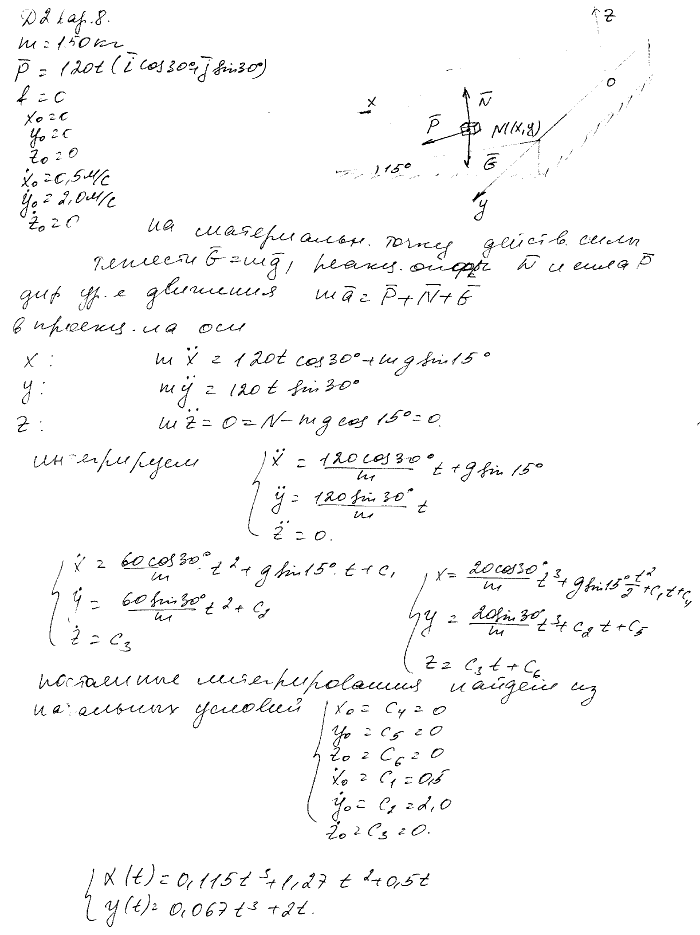 Д2 Вар.8.
m = 150 кг
P̄ = 120t (ī cos30° + j̄ sin30°)
f = 0
x₀ = 0
y₀ = 0
z₀ = 0
ẋ₀ = 0,5 м/с
ẏ₀ = 2,0 м/с
ż₀ = 0
z
O
x
N̄
P̄
M(x,y)
15°
Ḡ
y
на материальн. точку действ. силы
тяжести Ḡ = mḡ, реакц. опоры N̄ и сила P̄
диф ур-е движения mā = P̄ + N̄ + Ḡ
в проекц. на оси
x: mẍ = 120t cos30° + mg sin15°
y: mÿ = 120t sin30°
z: mz̈ = 0 = N - mg cos15° = 0.
интегрируем { ẍ = 120cos30°/m t + g sin15°
ÿ = 120sin30°/m t
z̈ = 0.
{ ẍ = 60cos30°/m t² + g sin15° t + c₁
ÿ = 60sin30°/m t² + c₂
ż = c₃
{ x = 20cos30°/m t³ + g sin15° t²/2 + c₁t + c₄
y = 20sin30°/m t³ + c₂t + c₅
z = c₃t + c₆
постоянные интегрирования найдем из
начальных условий { x₀ = c₄ = 0
y₀ = c₅ = 0
z₀ = c₆ = 0
ẋ₀ = c₁ = 0,5
ẏ₀ = c₂ = 2,0
ż₀ = c₃ = 0.
{ x(t) = 0,115t³ + 1,27t² + 0,5t
y(t) = 0,067t³ + 2t.